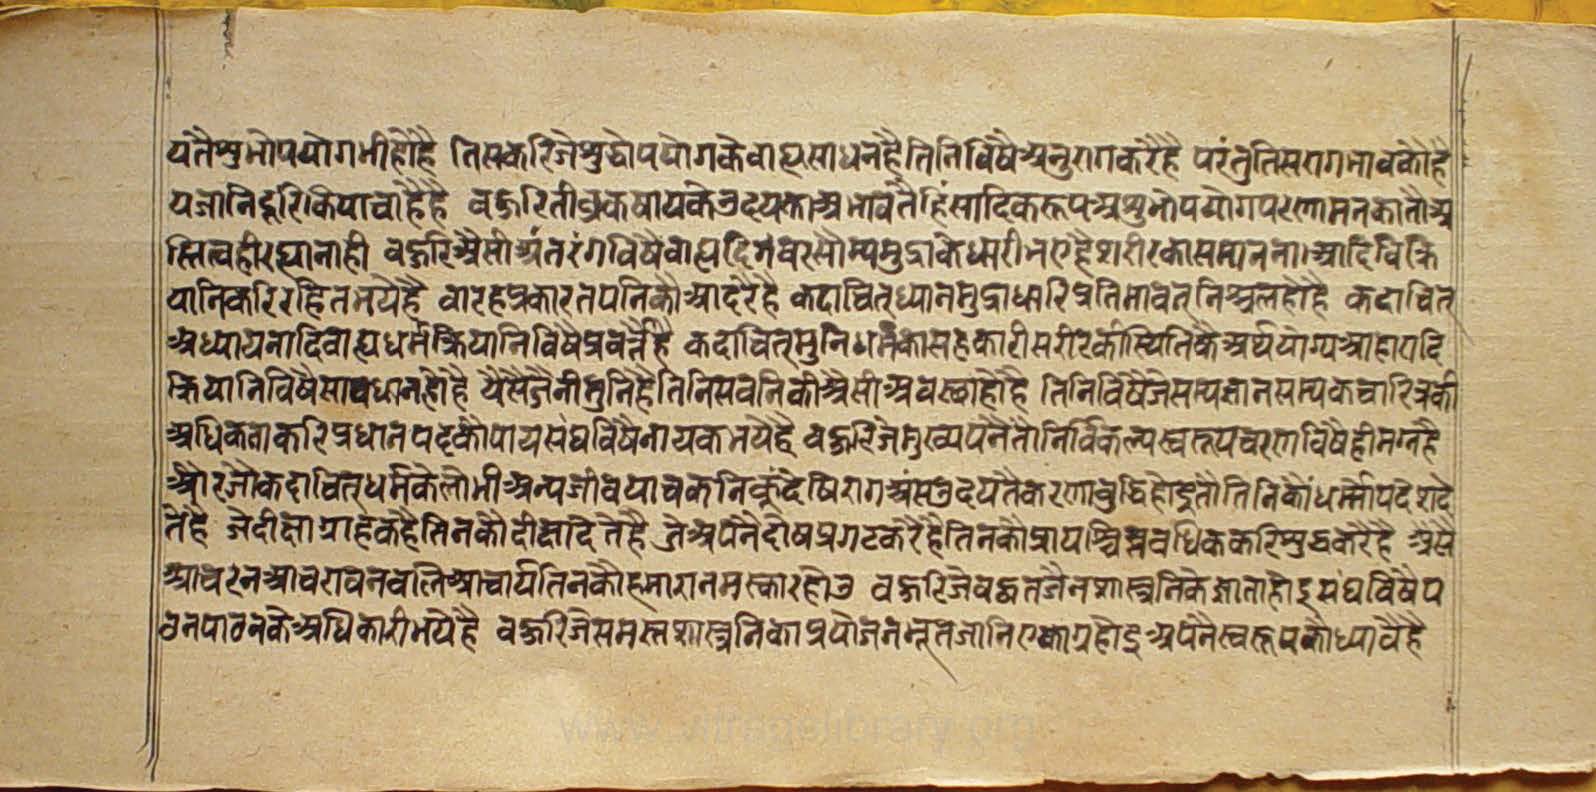 यतैशुभोपयोगभीहोहै तिसकरिजेशुद्धोपयोगकेवाह्यसाधनहैतिनिविषैअनुरागकरैहै परंतुतिसरागभावकौहे
यजानिदूरिकियाचाहैहै वहुरितीव्रकषायकेउदयकाअभावतैहिंसादिकरूपअशुभोपयोगपरणामनकातौअ
स्तित्वहीरह्यानाही वहुरिअैसीअंतरंगविषैवाह्यदिगंवरसौम्यमुद्राकेधारीभएहैशरीरकासम्मानना।आदिविक्रि
यानिकरिरहितभयेहै वारहप्रकारतपनिकौआदरैहै कदाचित्ध्यानमुद्राधारिप्रतिमावत्निश्चलहोहै कदाचित्
अध्यायनादिवाह्यधर्मक्रियानिविषैप्रवर्त्तैहै कदाचित्मुनिधर्मकासहकारीसरीरकीस्थितिकैअर्थयोग्यआहारादि
क्रियानिविषैसावधानहोहै यैसैजैनीमुनिहैतिनिसवनिकीअैसीअवस्थाहोहै तिनिविषैजेसम्यग्ज्ञानसम्यकचारित्रकी
अधिकताकरिप्रधानपदकौपायसंघविषैनायकभयेहै वहुरिजेमुख्यपनैतौनिर्विकल्पस्वरूपचरणविषैहीमग्नहै
औरजौकदाचित्धर्मकेलोभीअन्यजीवयाचकनिकूंदेषिरागअंसउदयतैकरणावुद्धिहोइतौतिनिकौंधर्मोपदेशदे
तेहै जेदीक्षाग्राहकहैतिनकौदीक्षादेतेहै जेअपनेदोषप्रगटकरैहैतिनकौप्रायश्चित्तवधिककरिशुद्धकरैहै अैसै
आचरनआचरावनवालेआचार्यतिनकौहमारानमस्कारहोउ वहुरिजेवह्वतजैनशास्त्रनिकेज्ञाताहोइसंघविषैप
ठनपाठनकेअधिकारीभयेहै वहुरिजेसमस्तशास्त्रनिकाप्रयोजनभूतजानिएकाग्रहोइअपनैस्वरूपकौध्यावैहै